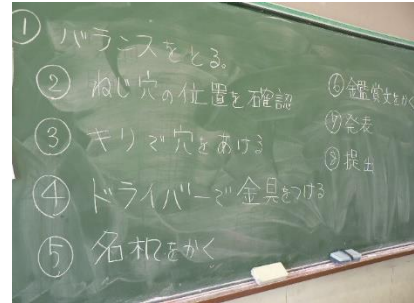 ① バランスをとる。
② ねじ穴の位置を確認
③ キリで穴をあける
④ ドライバーで金具をつける
⑤ 名札をかく
⑥ 鑑賞文をかく
⑦ 発表
⑧ 提出